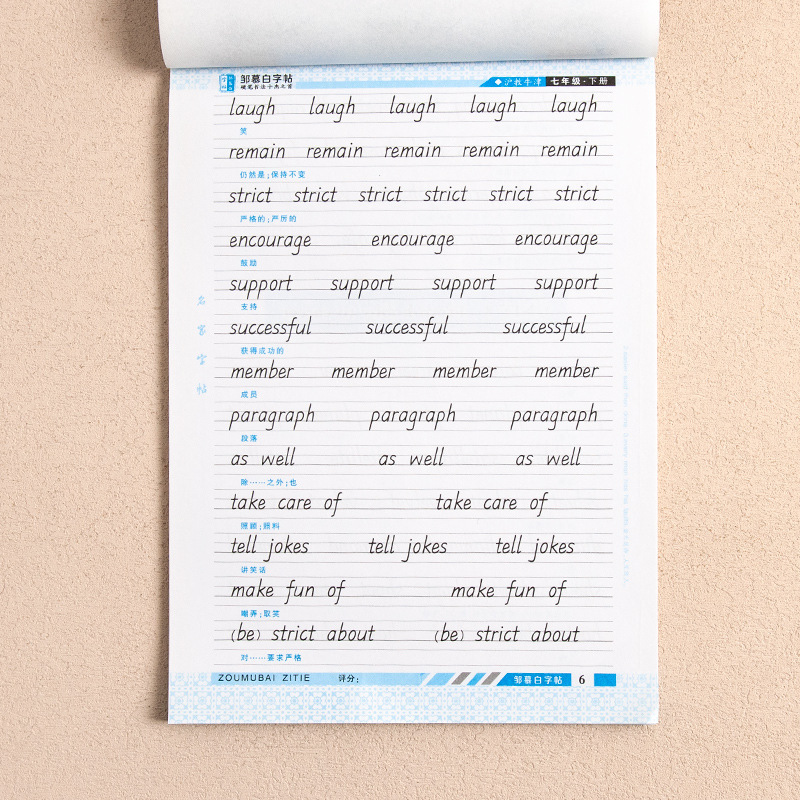 邹慕白字帖
硬笔书法十杰之首
◆沪教牛津 七年级·下册
laugh laugh laugh laugh laugh
笑
remain remain remain remain remain
仍然是;保持不变
strict strict strict strict strict strict
严格的;严厉的
encourage encourage encourage
鼓励
support support support support
支持
successful successful successful
获得成功的
member member member member
成员
paragraph paragraph paragraph
段落
as well as well as well
除……之外;也
take care of take care of
照顾;照料
tell jokes tell jokes tell jokes
讲笑话
make fun of make fun of
嘲弄;取笑
(be) strict about (be) strict about
对……要求严格
名家字帖
ZOUMUBAI ZITIE 评分: 邹慕白字帖 6